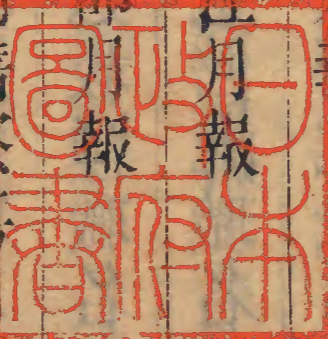 日本
政府
圖書
月報
月報